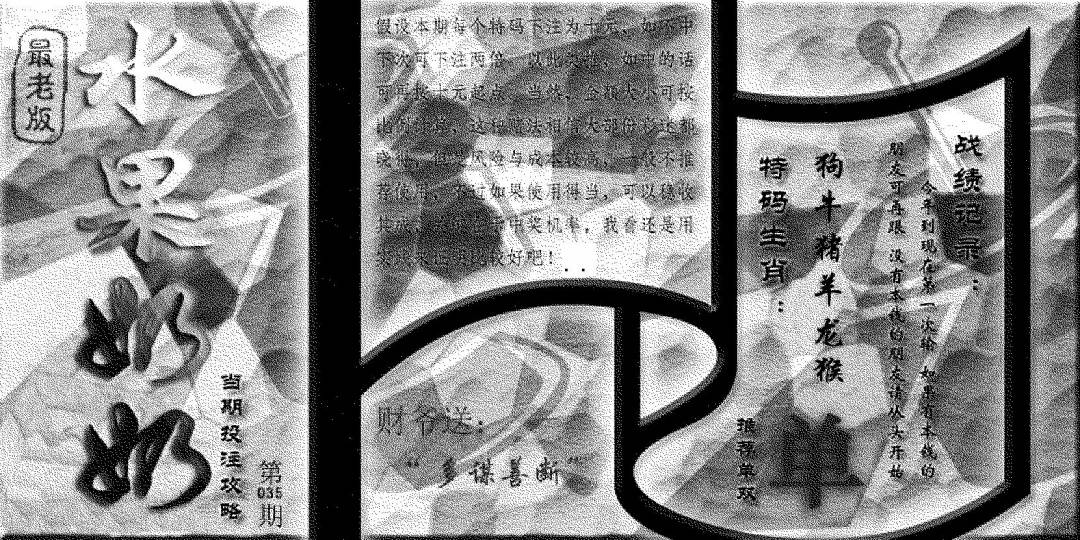 最老版
水果奶奶
当期投注攻略
第035期
假设本期每个特码下注为十元，如不中
下次可下注两倍，以此类推，如中的话
可再按十元起点，当然，金额大小可按
这种方法相信大部份彩迷都
晓得，但是风险与成本较高，一般不推
荐使用，不过如果使用得当，可以稳收
中奖机率，我看还是用
比较好吧！
财爷送：
“多谋善断”
战绩记录：
今年到现在第一次输 如果有本钱的
朋友可再跟 没有本钱的朋友请从头开始
狗牛猪羊龙猴
特码生肖：
推荐单双
单